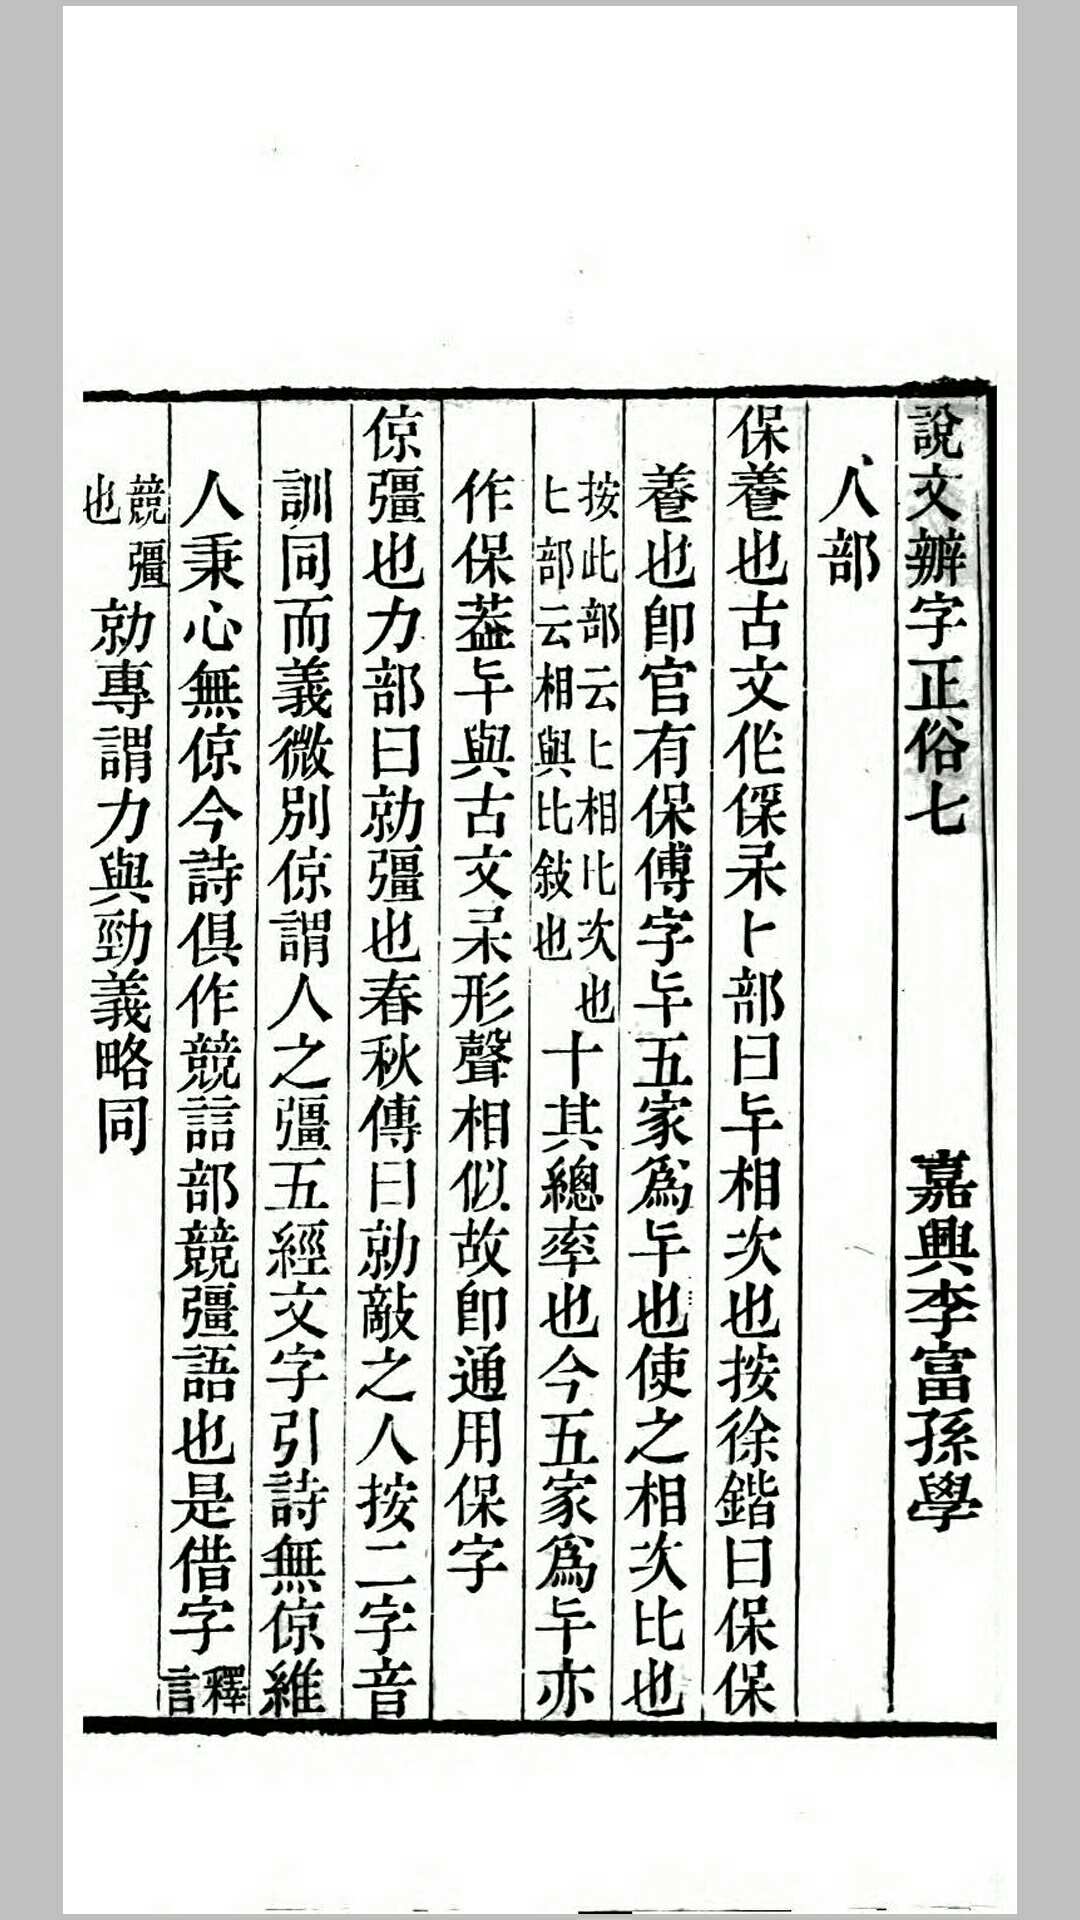 說文辨字正俗七　嘉興李富孫學
人部
保養也古文作保𣎼匕部曰㐄相次也按徐鍇曰保保
養也卽官有保傅字㐄五家爲㐄也使之相次比也
按此部云匕相比次也
匕部云相與比敍也
十其總率也今五家爲㐄亦
作保葢㐄與古文呆形聲相似故卽通用保字
倞彊也力部曰勍彊也春秋傳曰勍敵之人按二字音
訓同而義微別倞謂人之彊五經文字引詩無倞維
人秉心無倞今詩俱作競誩部競彊語也是借字
釋言
競彊也
勍專謂力與勁義略同